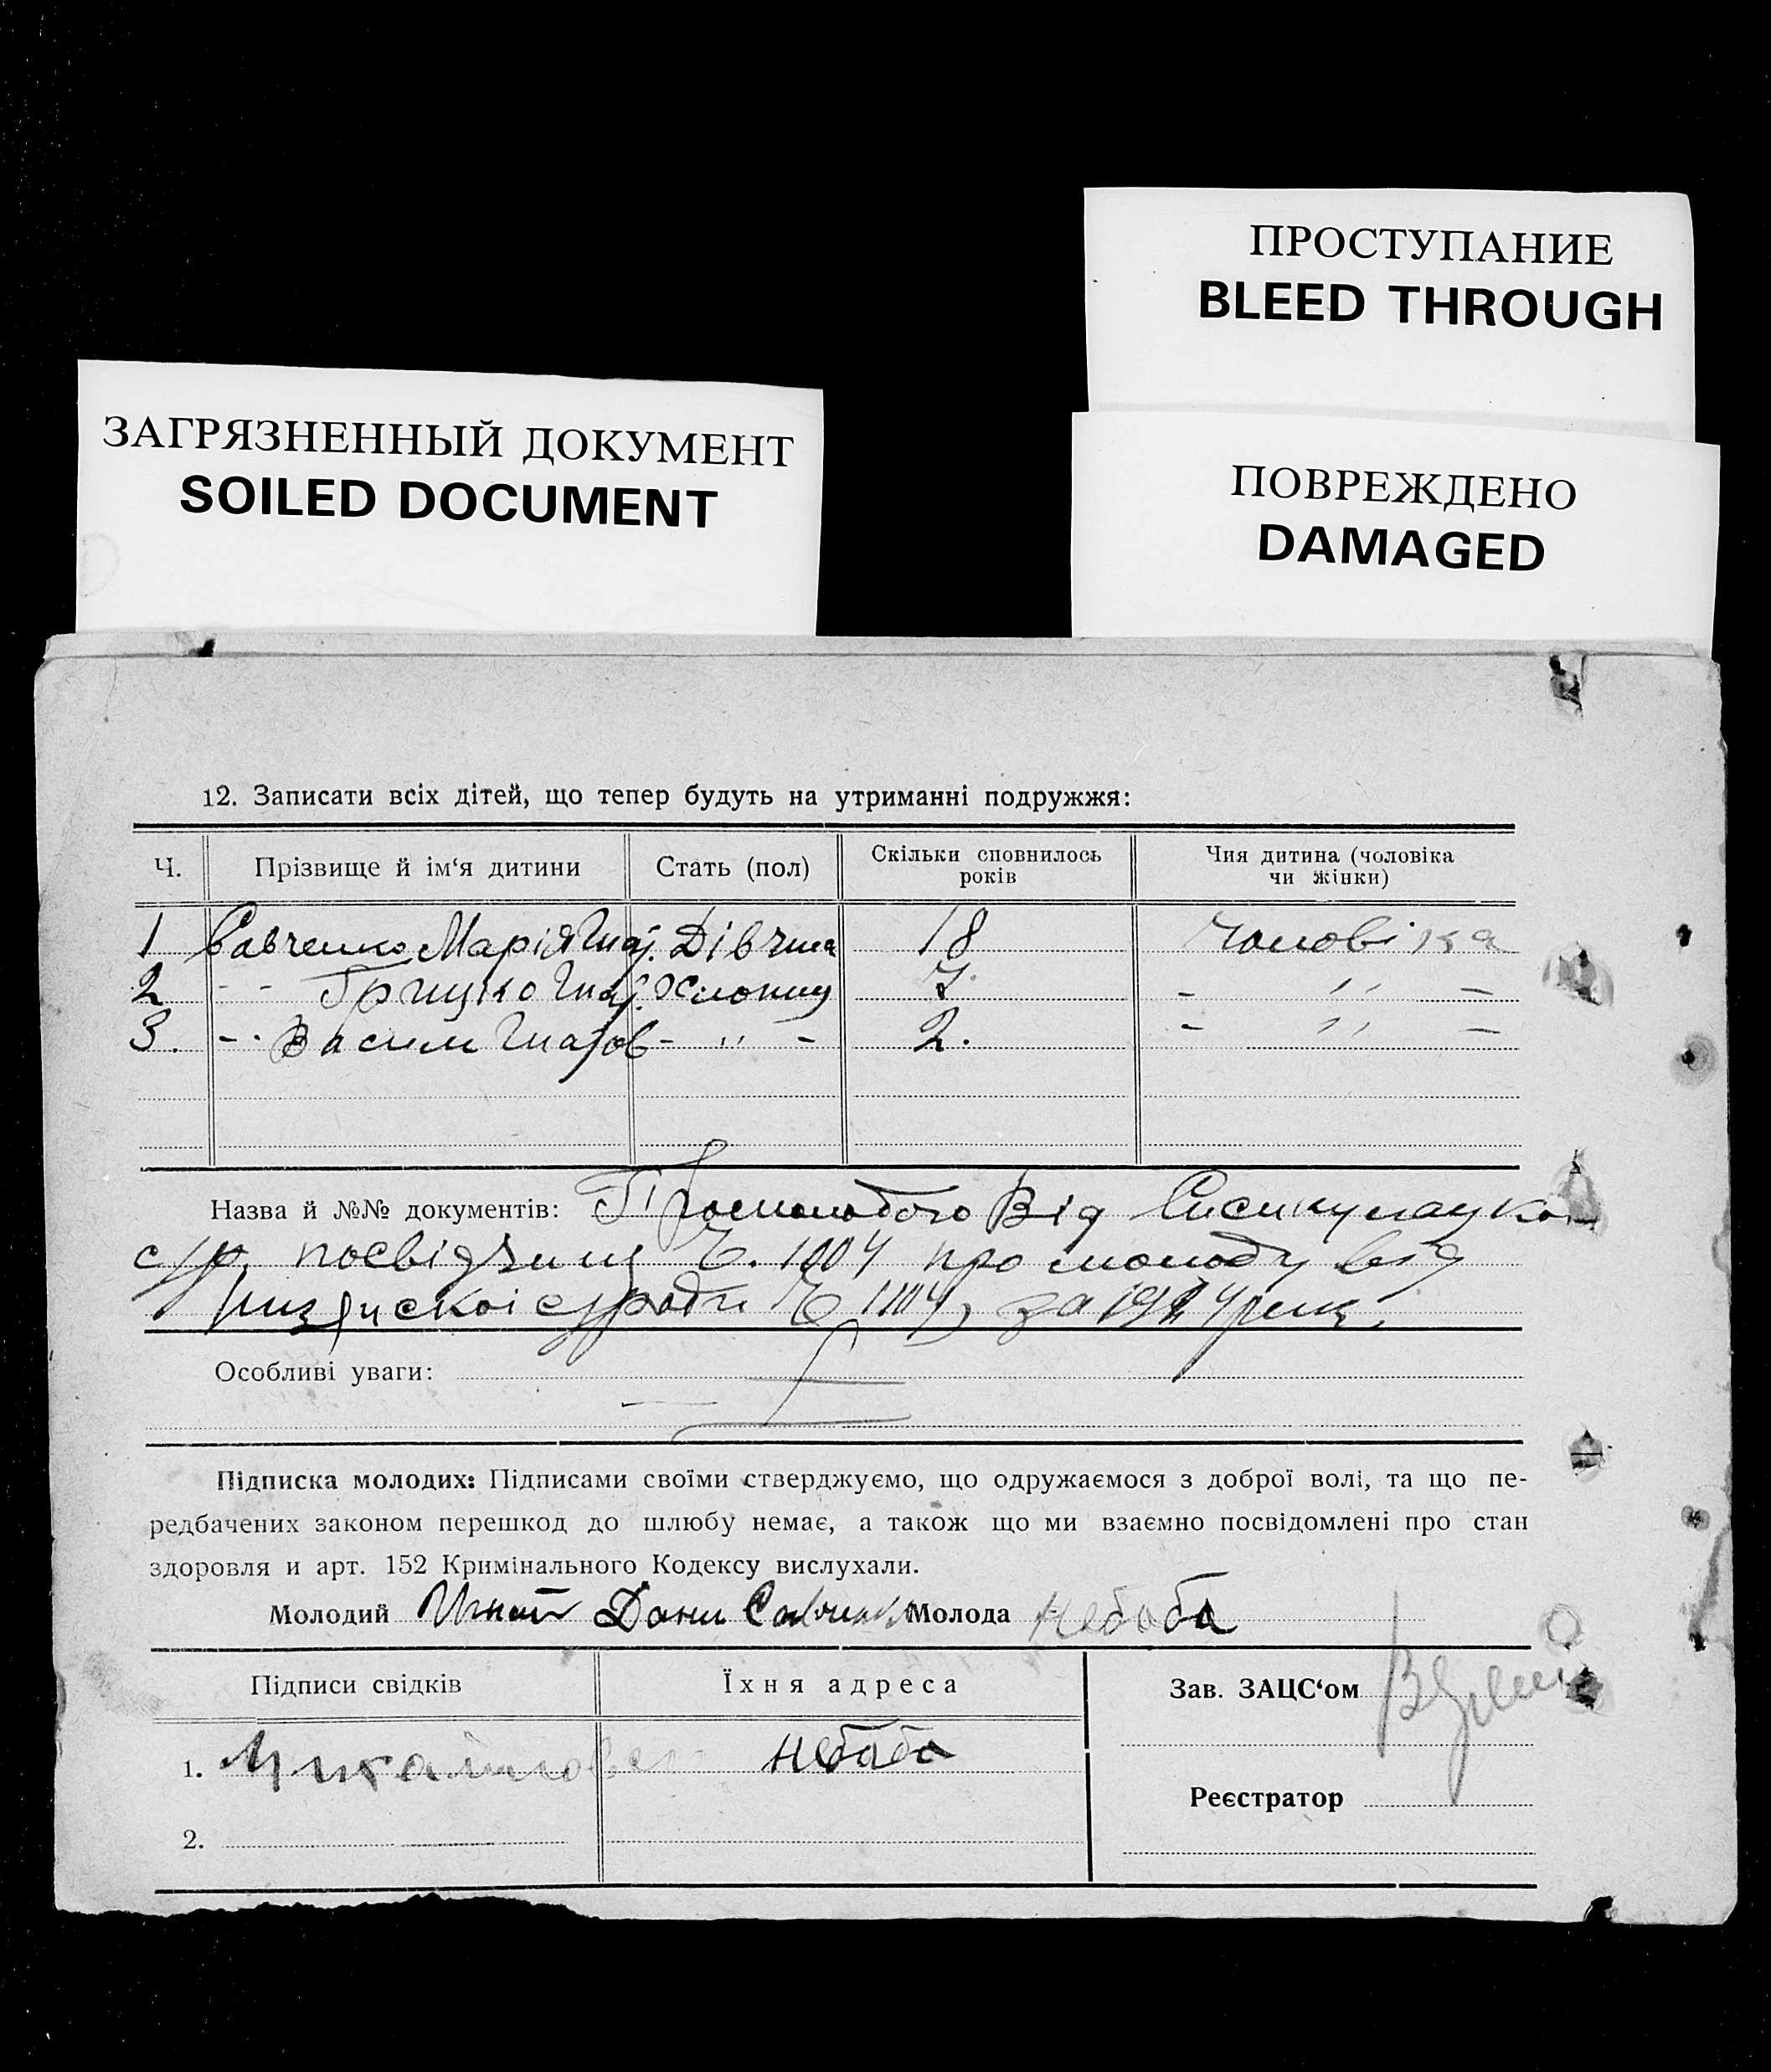 ПРОСТУПАНИЕ
BLEED THROUGH
ЗАГРЯЗНЕННЫЙ ДОКУМЕНТ
SOILED DOCUMENT
ПОВРЕЖДЕНО
DAMAGED
12. Записати всіх дітей, що тепер будуть на утриманні подружжя:
Ч. Прізвище й ім‘я дитини Стать (пол) Скільки сповнилось років Чия дитина (чоловіка чи жінки)
1 Савченко Марія Гнат. Дівчина 18 Чоловіка
2 - - Грицко Гнат. Хлопиц 7. - ,, -
3. - . Васили - ,, - 2. - ,, -
Назва й №№ документів: Про молодого від
с/р. посвідчиц Ч. 1004 про молоду від
с/ради Ч 1104, за 1924 рик.
Особливі уваги:
Підписка молодих: Підписами своїми стверджуємо, що одружаємося з доброї волі, та що пе-
редбачених законом перешкод до шлюбу немає, а також що ми взаємно посвідомлені про стан
здоровля и арт. 152 Кримінального Кодексу вислухали.
Молодий Молода Небаба
Підписи свідків Їхня адреса Зав. ЗАЦС‘ом
1. Небаба
Реєстратор
2.